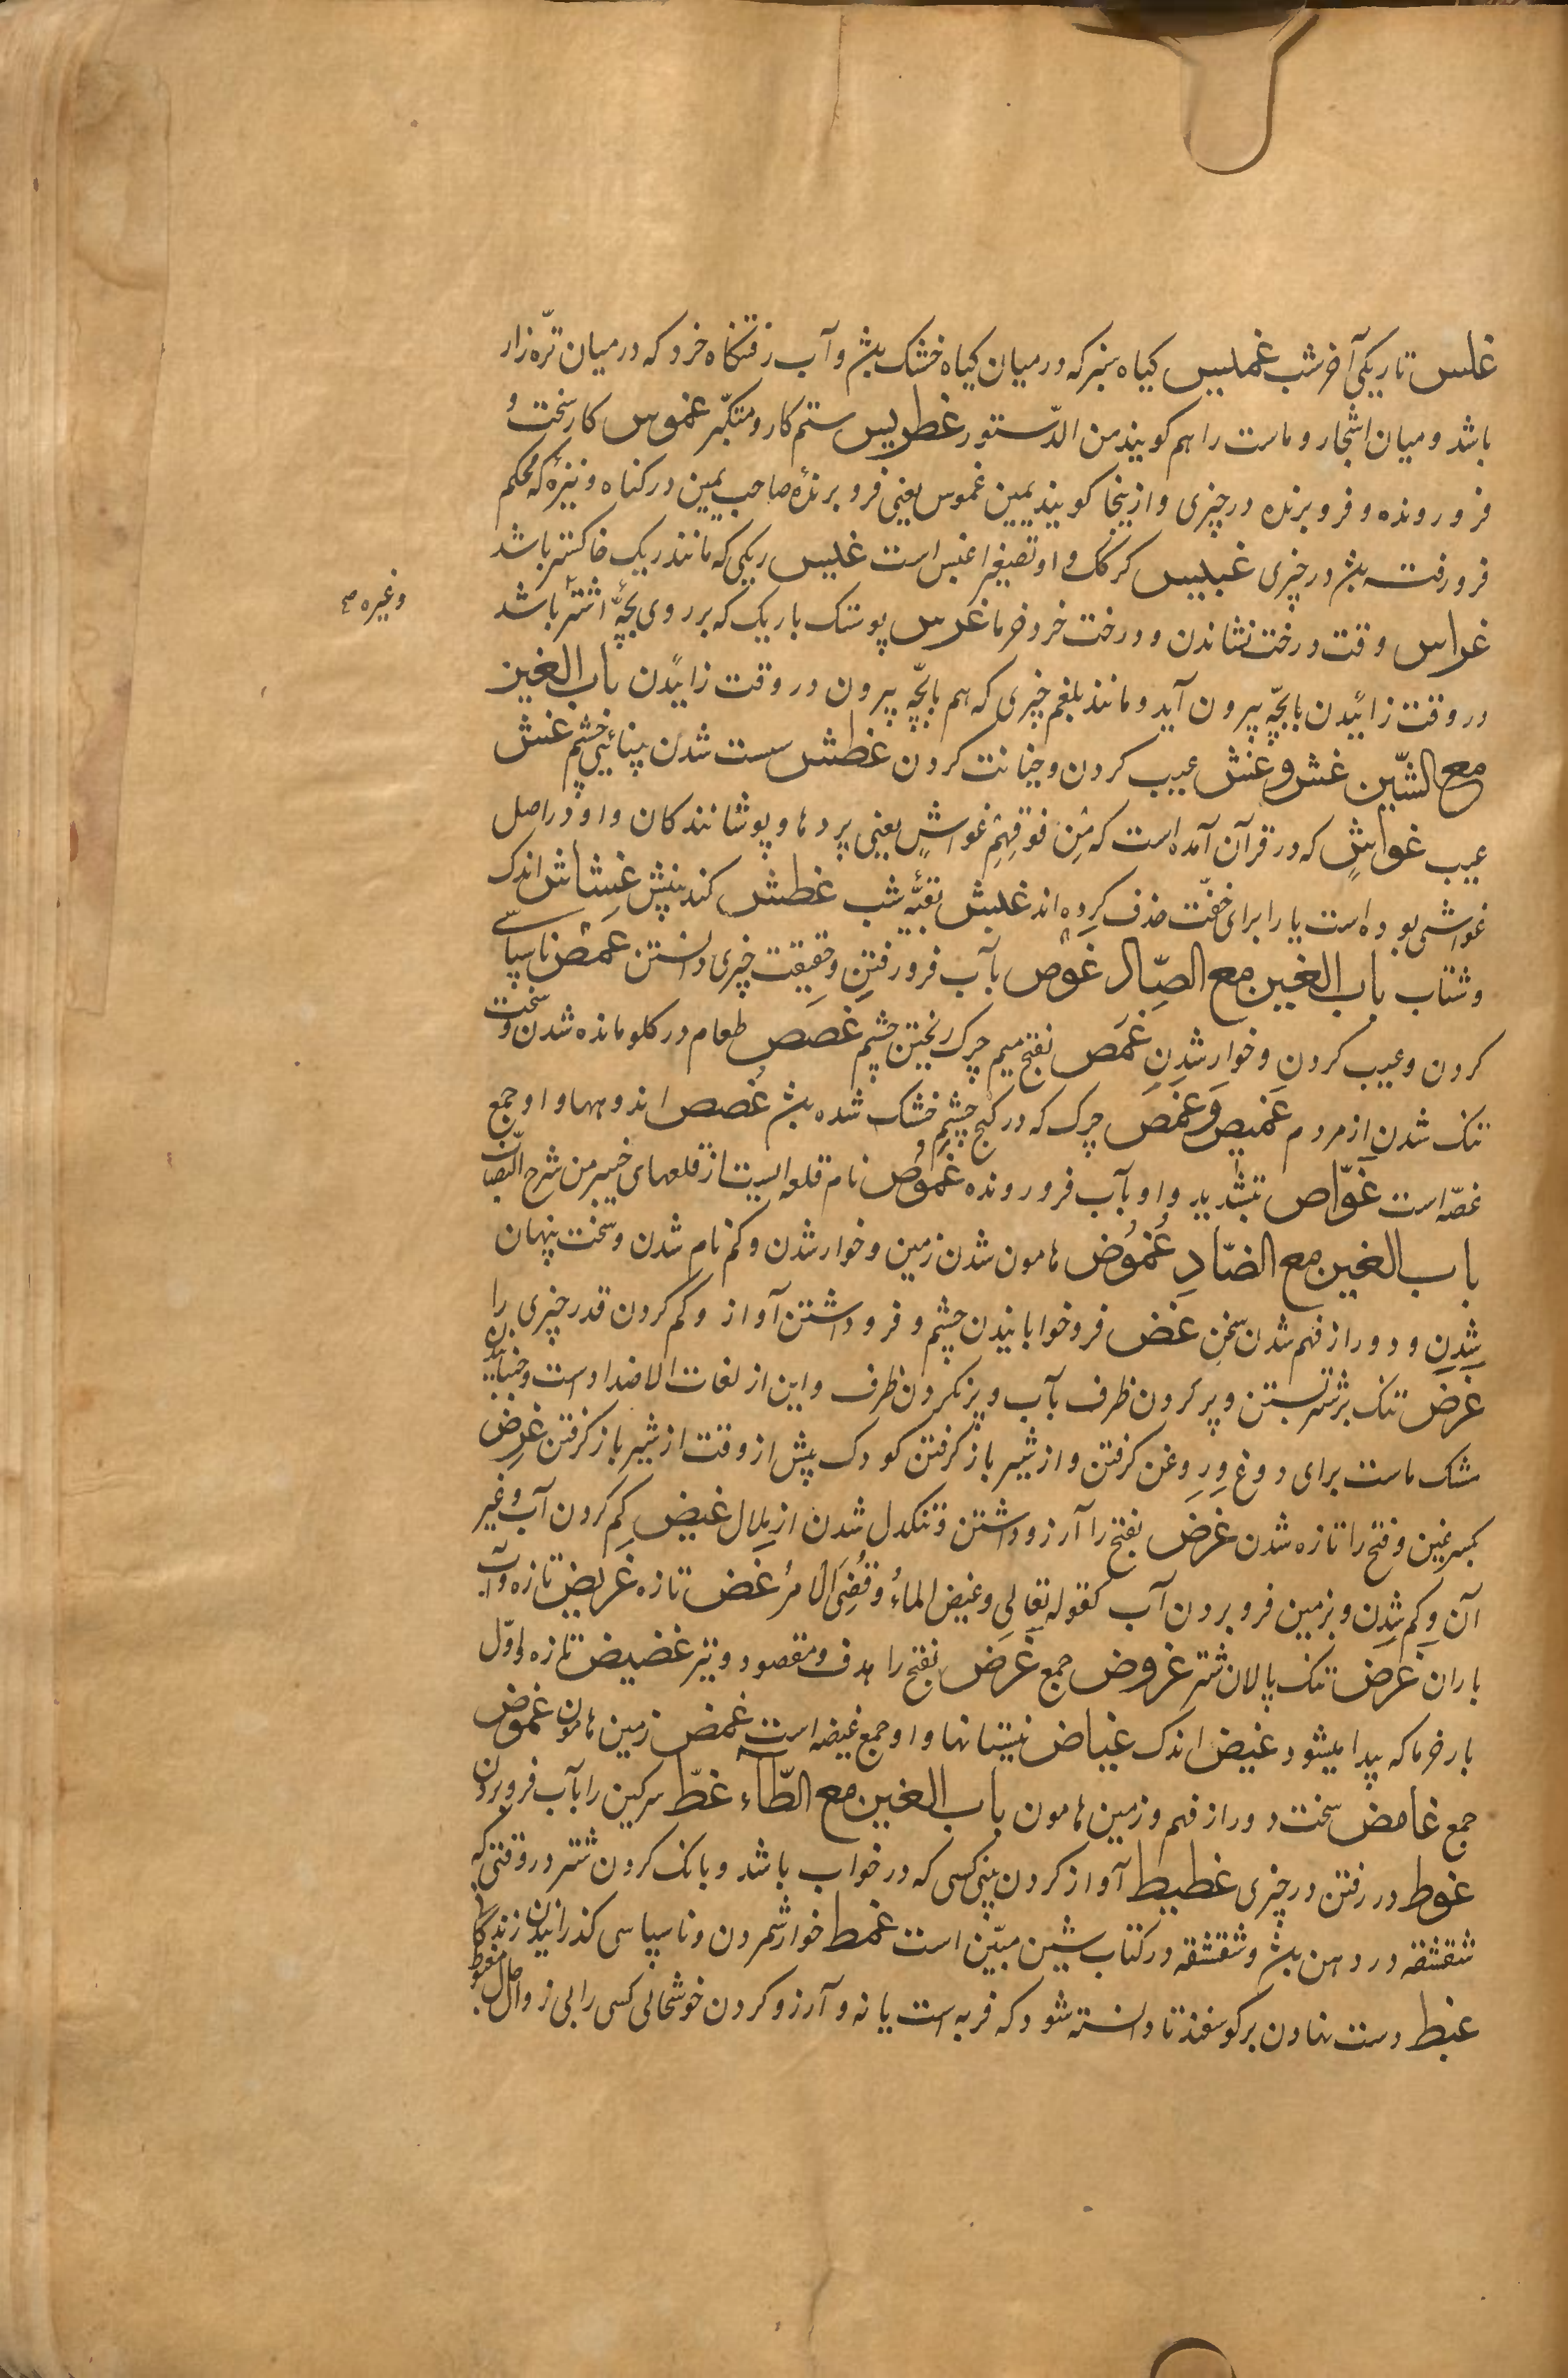 غلس تاریکی آخر شب غملیس کیاه سبز که در میان کیاه خشک بشد و آب رفتنکاه خرد که در میان ترّه زار
باشد و میان اشجار و ماست را هم کویند من الدّستور غطریس ستم کار و متکبّر غموس کار سخت و
فرو رونده و فرو برنده در چیزی و از ینجا کویند یمین غموس یعنی فرو برندهٔ صاحب یمین در کناه و نیزهٔ که محکم
فرو رفته بشد در چیزی غبیس کرکک و او تصغیر اغبس است غلیس ریکی که مانند ریک خاکستر باشد
وغیره صح
غراس وقت درخت نشاندن و درخت خرد خرما غرس پوستک باریک که بر روی بچّهٔ اشتر باشد
در وقت زائیدن با بچّه بیرون آید و مانند بلغم چیزی که هم با بچّه بیرون در وقت زائیدن باب الغین
مع الشّین غش و غش عیب کردن و خیانت کردن غطش سست شدن بینائیِ چشم غش
عیب غواشٍ که در قرآن آمده است که مِن فوقِهِم غواشٍ یعنی پردها و پوشانندکان و او در اصل
غواشی بوده است یا را برای خفّت حذف کرده اند غلبش بقیّهٔ شب غطش کند بینش غِشاش اندک
و شتاب باب الغین مع الصّاد غوص بآب فرو رفتن و حقیقت چیزی دانستن غمص ناسپاسی
کردن و عیب کردن و خوار شدن غَمَص بفتح میم چرک ریختن چشم غصص طعام در کلو مانده شدن و سخت
تنک شدن از مردم غمیص و غمص چرک که در کنج چشم خشک شده بشد غُصص اندوهها و او جمع
غصّه است غوّاص بتشدید واو بآب فرو رونده غموص نام قلعه ایست از قلعهای خیبر من شرح النّصاب
باب الغین مع الضّاد غُمُوض هامون شدن زمین و خوار شدن و کم نام شدن و سخت پنهان
شدن و دور از فهم شدن سخن غض فرو خوابانیدن چشم و فرو داشتن آواز و کم کردن قدر چیزی را
غرض تنک بر شتر بستن و پر کردن ظرف بآب و پر نکردن ظرف و این از لغات الاضداد است و جنبانیدن
مشک ماست برای دوغ و روغن کرفتن و از شیر باز کرفتن کودک پیش از وقت از شیر باز کرفتن غرض
بکسر غین و فتح را تازه شدن غرض بفتح را آرزو داشتن و تنکدل شدن از ملال غیض کم کردن آب و غیر
آن و کم شدن و بزمین فرو بردن آب کقوله تعالی و غیض الماءُ و قُضِیَ الامرُ غض تازه غریض تازه و آب
باران غرض تنک پالان شتر غروض جمع غرض بفتح را هدف و مقصود و تیر غضیض تازه و اوّل
بار خرما که پیدا میشود غیض اندک غیاض نیستانها و او جمع غیضه است غمض زمین هامون غموض
جمع غامض سخت دور از فهم و زمین هامون باب الغین مع الطّآء غطّ سرکین را بآب فرو بردن
غوط در رفتن در چیزی غطیط آواز کردن بینی کسی که در خواب باشد و بانک کردن شتر در وقتی که
شقشقه در دهن بشد و شقشقه در کتاب شین مبیّن است غمط خوار شمردن و ناسپاسی کذرانیدن
غبط دست نهادن بر کوسفند تا دانسته شود که فربه است یا نه و آرزو کردن خوشحالی کسی را بی زوال